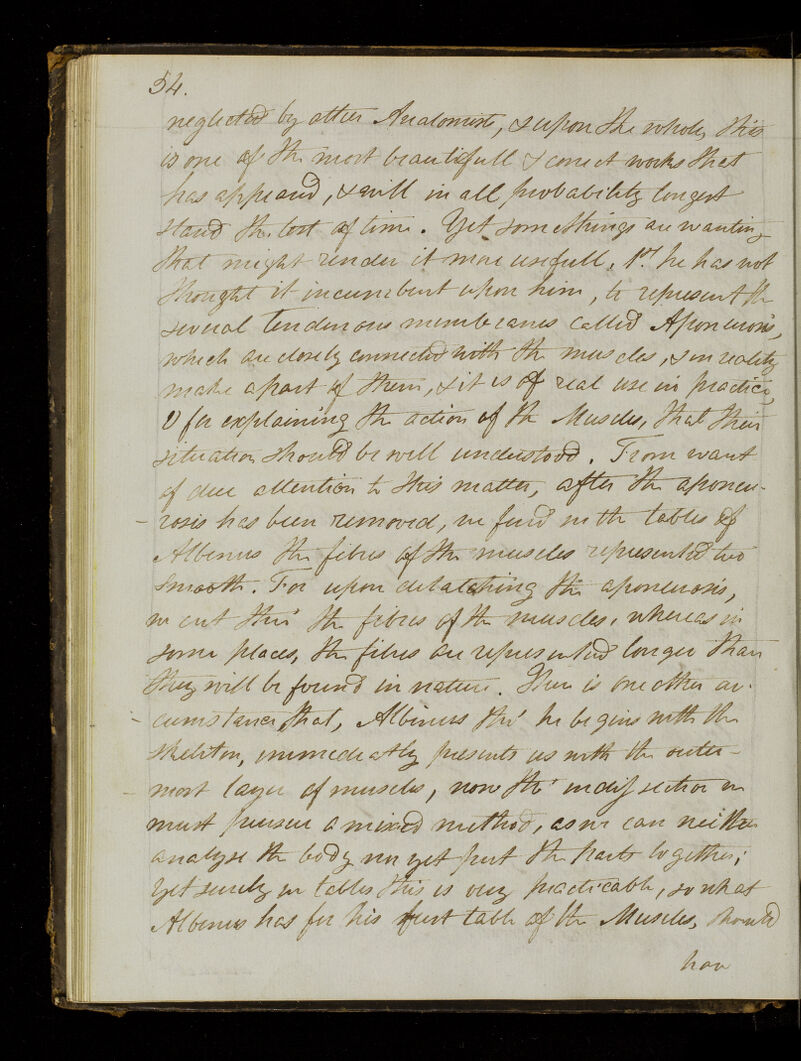 54.
neglected by other Anatomists, & upon the whole, this
is one of the most beautifull & correct works that
has appeard, & will in all probability longest
stand the test of time. Yet some things are wanting
that might render it more usefull, 1st he has not
thought it incumbent upon him, to represent the
several Tendenous membranes called Aponeurosis,
which are closely connected with the muscles, & in reality
make a part of them, & it is of real use in practice,
& for explaining the action of the Muscles, that their
situation should be well understood. From want
of due attention to this matter, after the aponeu-
rosis has been removed, we find in the tables of
Albinus the fibres of the muscles represented too
smooth. For upon detatching the aponeurosis,
we cut thro' the fibres of the muscles, whereas in
some places, the fibres are represented longer than
they will be found in nature. There is one other cir-
cumstance, that, Albinus tho' he begins with the
skeleton, immediatly presents us with the outer-
most layer of muscles, now tho' in dissection we
must pursue a mixed method, as we can neither
analyse the body nor yet put the parts together;
Yet surely in tables this is very practicable, so what
Albinus has for his first table of the Muscles, should
have